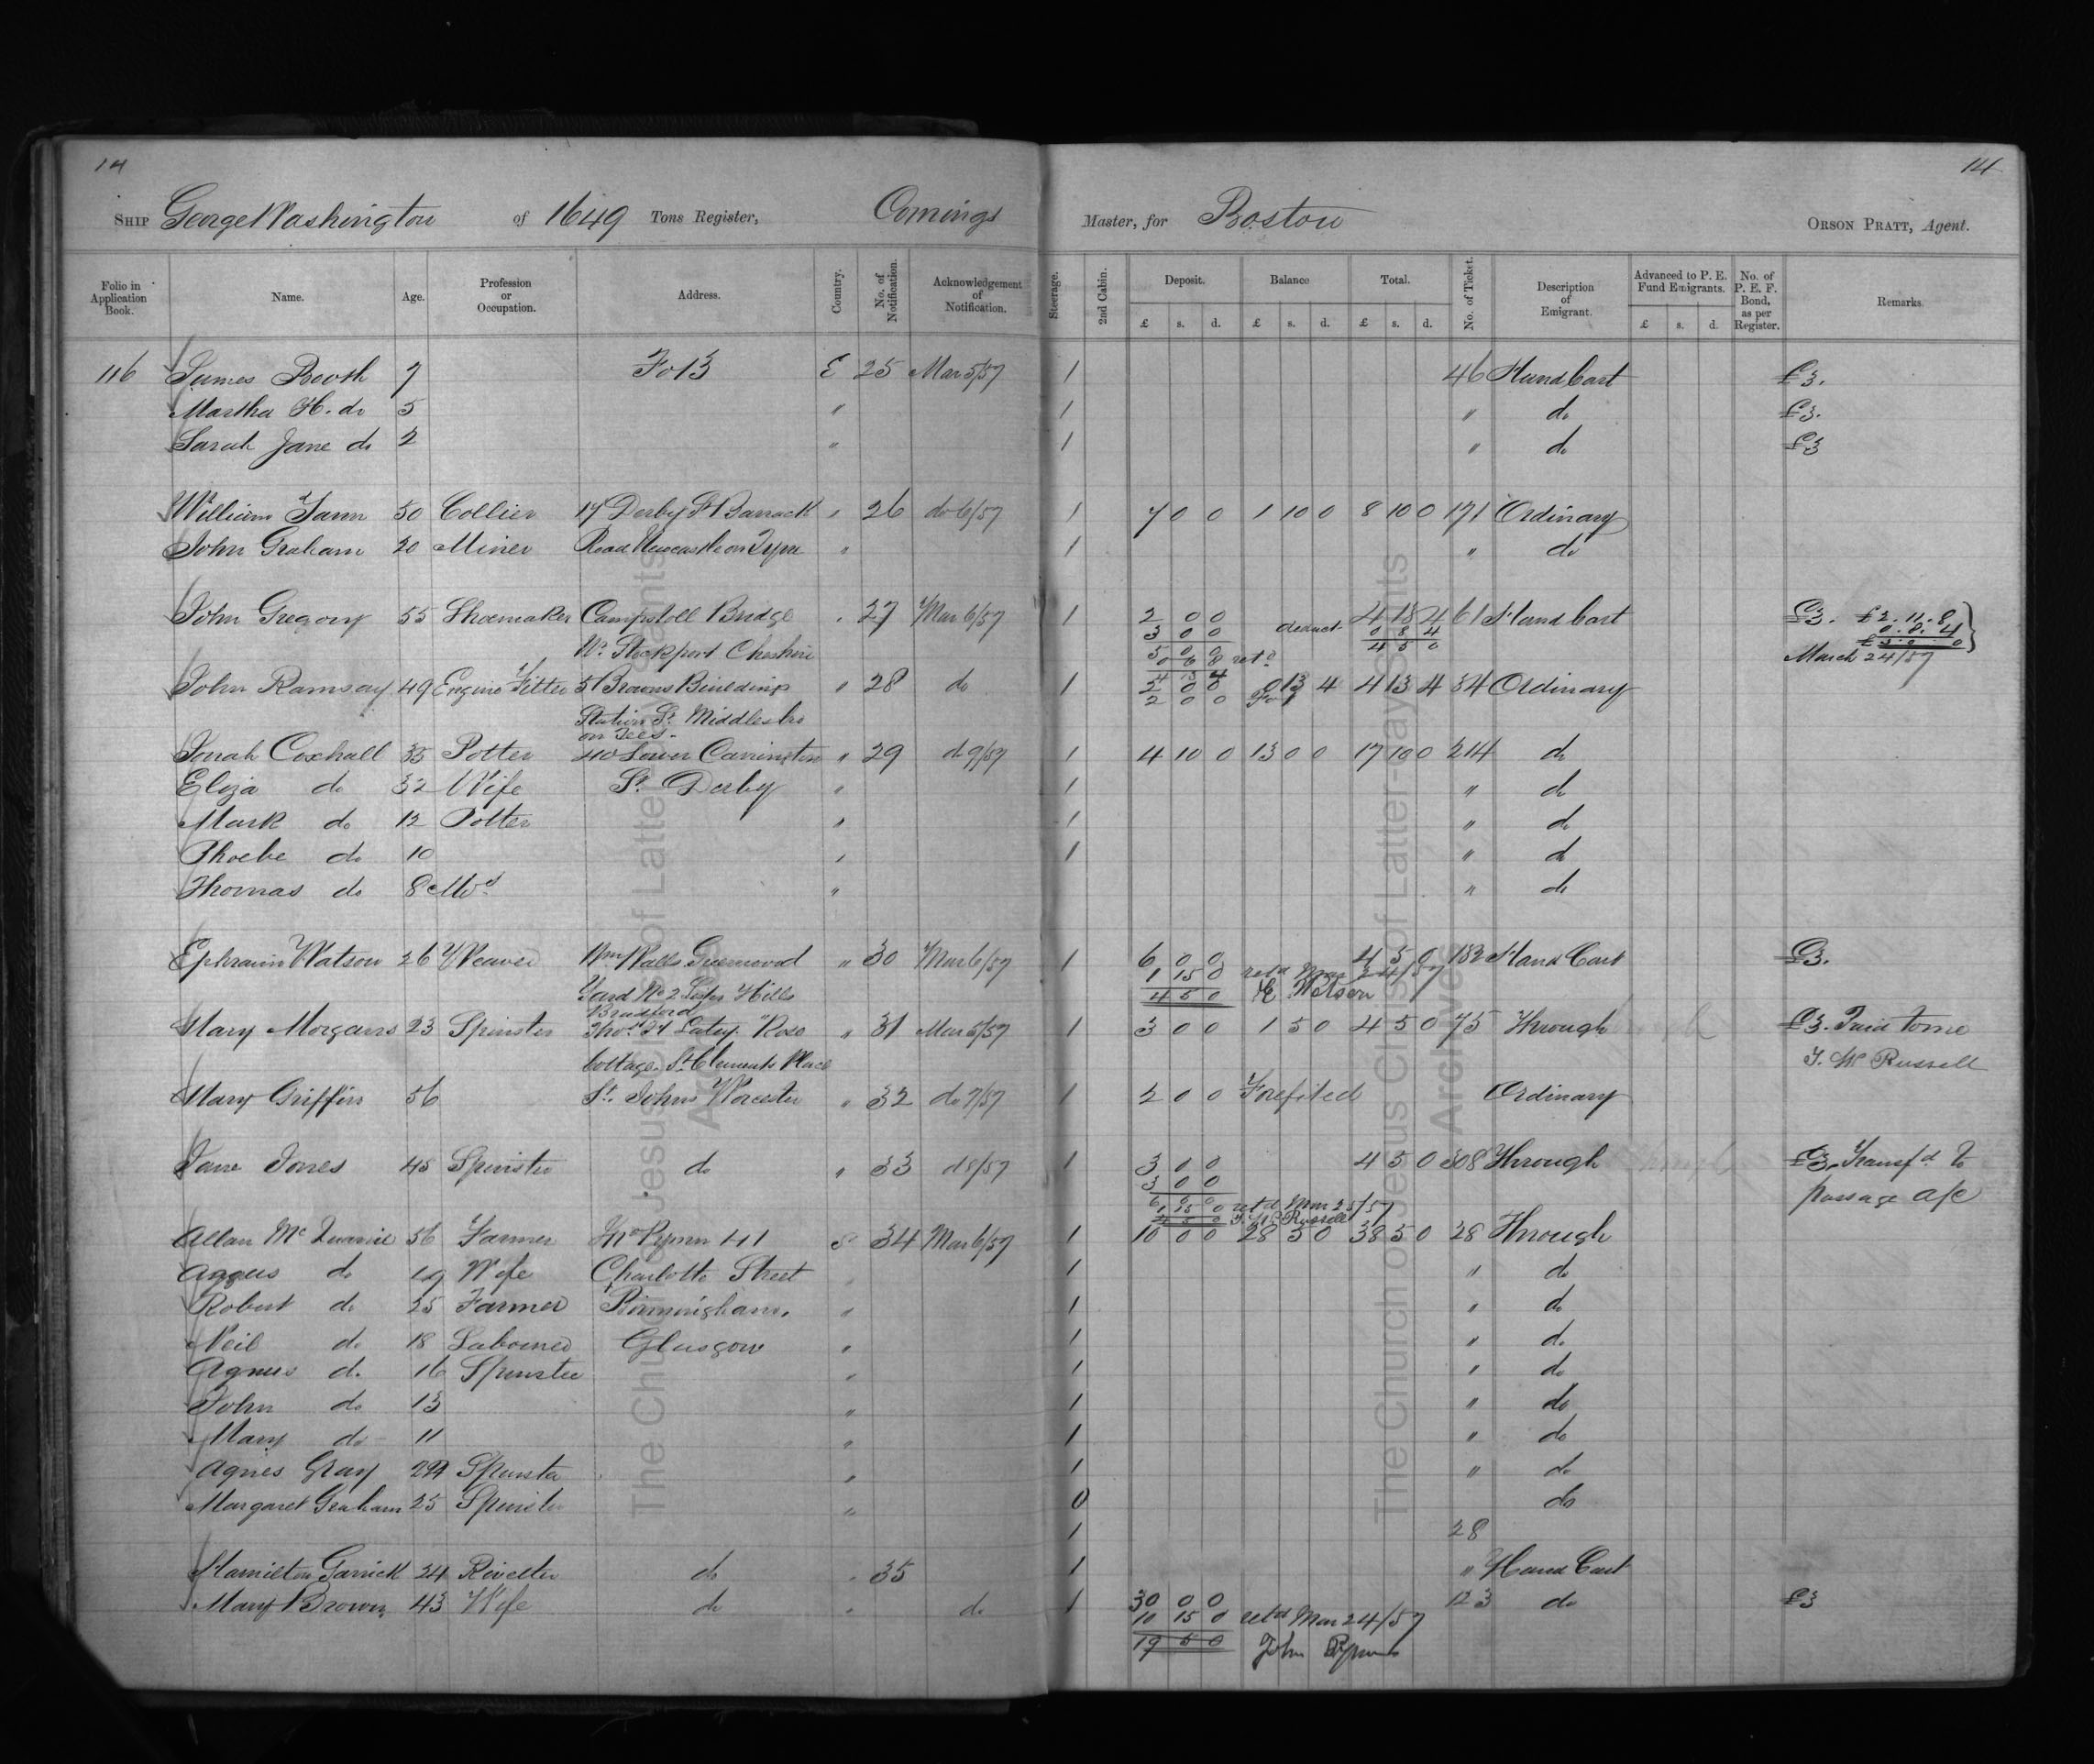 14 14
SHIP George Washington of 1649 Tons Register, Comings Master, for Boston ORSON PRATT, Agent.
Folio in Application Book. Name. Age. Profession or Occupation. Address. Country. No. of Notification. Acknowledgement of Notification. Steerage. 2nd Cabin. Deposit. Balance Total. No. of Ticket. Description of Emigrant. Advanced to P. E. Fund Emigrants. No. of P. E. F. Bond, as per Register. Remarks.
£ s. d. £ s. d. £ s. d. £ s. d.
116 James Booth 7 Fo 13 E 25 Mar 5/57 1 46 Hand Cart £3.
Martha H. do 5 " 1 " do £3.
Sarah Jane do 2 " 1 " do £3
William 50 Collier 17 Derby St Barrack " 26 do 6/57 1 7 0 0 1 10 0 8 10 0 171 Ordinary
John Graham 20 Miner Road Newcastle on Tyne " 1 " do
John Gregory 55 Shoemaker Campstoll Bridge " 27 Mar 6/57 1 2 0 0 4 13 4 61 Hand Cart £3. £2.11.8
3 0 0 deduct 0 8 4 0.8.4
Nr. Stockport Cheshire 5 0 0 4 5 0 £3.0.0
0 6 8 retd March 24/57
4 13 4
John Ramsay 49 Engine Fitter 51 Browns Buildings " 28 do 1 2 0 0 0 13 4 4 13 4 34 Ordinary
Station St. Middlesbro 2 0 0 Fo 1
on Tees.
Jonah Coxhall 35 Potter 40 Lower Carrington " 29 do 9/57 1 4 10 0 13 0 0 17 10 0 214 do
Eliza do 32 Wife St. Derby " 1 " do
Mark do 12 Potter " 1 " do
Phoebe do 10 " 1 " do
Thomas do 8 Mos " " do
Ephraim Watson 26 Weaver Wm Walls Greenwood " 30 Mar 6/57 1 6 0 0 4 5 0 182 Hand Cart £3.
1 15 0 retd Mar 24/57
Yard No 2 Hills 4 5 0 E Watson
Bradford
Mary Morgans 23 Spinster Thos Rose " 31 Mar 5/57 1 3 0 0 1 5 0 4 5 0 75 Through £3. Paid to me
Cottage. St Clements Place T. W Russell
Mary Griffin 56 St. Johns Worcester " 32 do 7/57 1 2 0 0 Forefited Ordinary
Jane Jones 45 Spinster do " 33 do 8/57 1 3 0 0 4 5 0 308 Through £3. Transfd to
3 0 0 passage a/c
6 0 0
1 15 0 retd Mar 25/57
4 5 0 T. W Russell
Allan Mc Quarrie 56 Farmer Jno Pymm 41 S 34 Mar 6/57 1 10 0 0 28 5 0 38 5 0 28 Through
Agnus do 49 Wife Charlotte Street " 1 " do
Robert do 25 Farmer Birmingham. " 1 " do
Neil do 18 Labourer Glasgow " 1 " do
Agnus do 16 Spinster " 1 " do
John do 13 " 1 " do
Mary do 11 " 1 " do
Agnes Gray Spinster " 1 " do
Margaret Graham 25 Spinster " 0 do
1 28
Hamilton Garrick 24 Rivetter do " 35 1 " Hand Cart
Mary Brown 43 Wife do " do 1 30 0 0 123 do £3
10 15 0 retd Mar 24/57
19 5 0 John Pymm
The Church of Jesus Christ of Latter-day Saints
Archives
The Church of Jesus Christ of Latter-day Saints
Archives